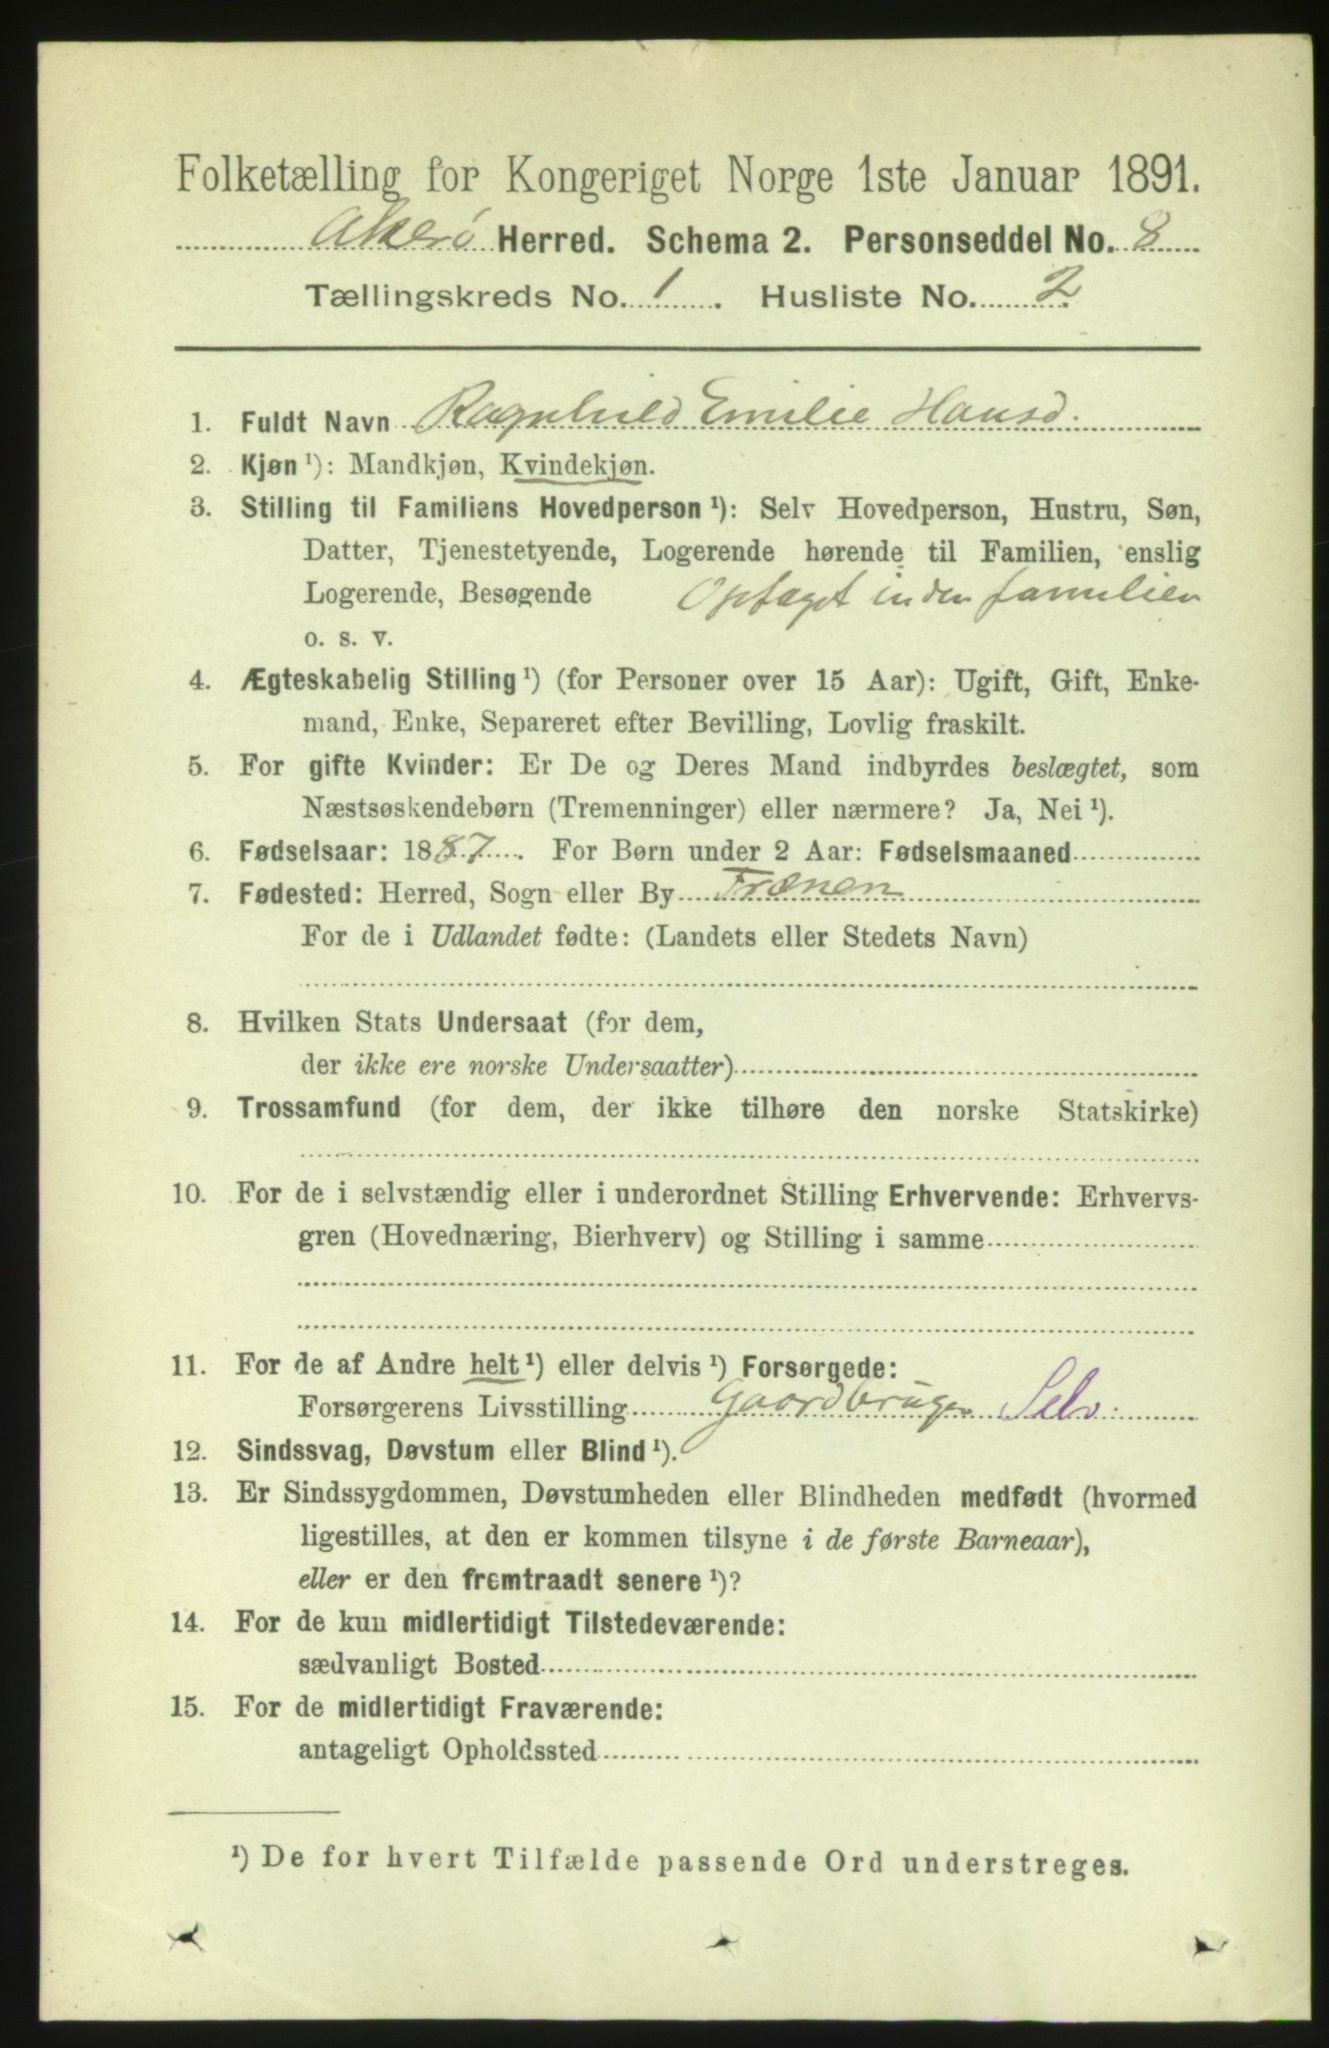 Folketælling for Kongeriget Norge 1ste Januar 1891.
Akerø Herred. Schema 2. Personseddel No. 8
Tællingskreds No. 1. Husliste No. 2.
1. Fuldt Navn Ragnhild Emilie Hansd.
2. Kjøn ¹): Mandkjøn, Kvindekjøn.
3. Stilling til Familiens Hovedperson ¹): Selv Hovedperson, Hustru, Søn,
Datter, Tjenestetyende, Logerende hørende til Familien, enslig
Logerende, Besøgende Optaget in den familien
o. s. v.
4. Ægteskabelig Stilling ¹) (for Personer over 15 Aar): Ugift, Gift, Enke-
mand, Enke, Separeret efter Bevilling, Lovlig fraskilt.
5. For gifte Kvinder: Er De og Deres Mand indbyrdes beslægtet, som
Næstsøskendebørn (Tremenninger) eller nærmere? Ja, Nei ¹).
6. Fødselsaar: 1887. For Børn under 2 Aar: Fødselsmaaned
7. Fødested: Herred, Sogn eller By Frænen
For de i Udlandet fødte: (Landets eller Stedets Navn)
8. Hvilken Stats Undersaat (for dem,
der ikke ere norske Undersaatter)
9. Trossamfund (for dem, der ikke tilhøre den norske Statskirke)
10. For de i selvstændig eller i underordnet Stilling Erhvervende: Erhvervs-
gren (Hovednæring, Bierhverv) og Stilling i samme
11. For de af Andre helt ¹) eller delvis ¹) Forsørgede:
Forsørgerens Livsstilling Gaardbruger Selv.
12. Sindssvag, Døvstum eller Blind ¹).
13. Er Sindssygdommen, Døvstumheden eller Blindheden medfødt (hvormed
ligestilles, at den er kommen tilsyne i de første Barneaar),
eller er den fremtraadt senere ¹)?
14. For de kun midlertidigt Tilstedeværende:
sædvanligt Bosted
15. For de midlertidigt Fraværende:
antageligt Opholdssted
¹) De for hvert Tilfælde passende Ord understreges.